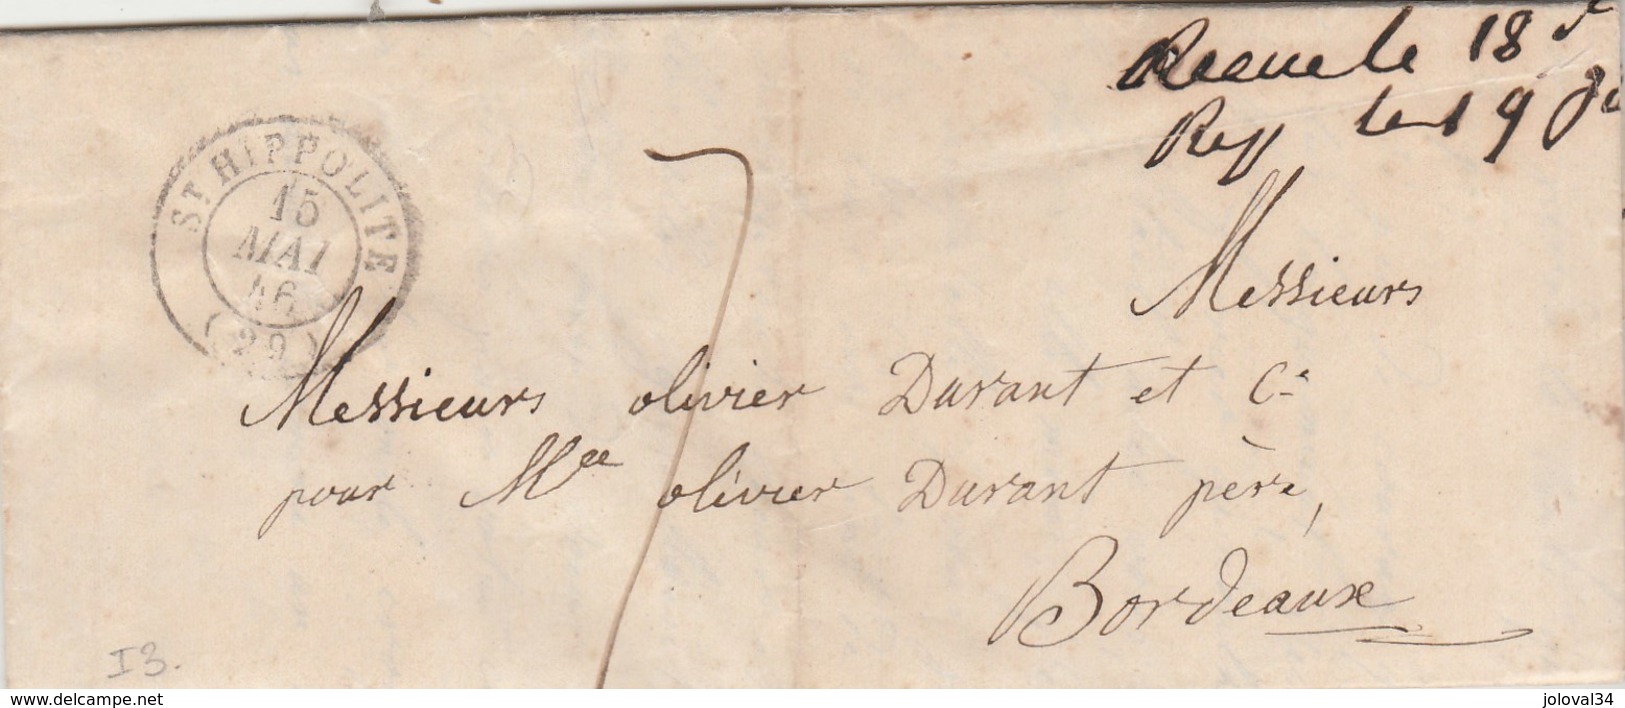 Recue le 18
Rep le 19
ST HIPPOLITE
15
MAI
46
(29)
7
Messieurs
Messieurs olivier Durant et Cie
pour Mee olivier Durant père,
Bordeaux
I3.
www.delcampe.net
joloval34